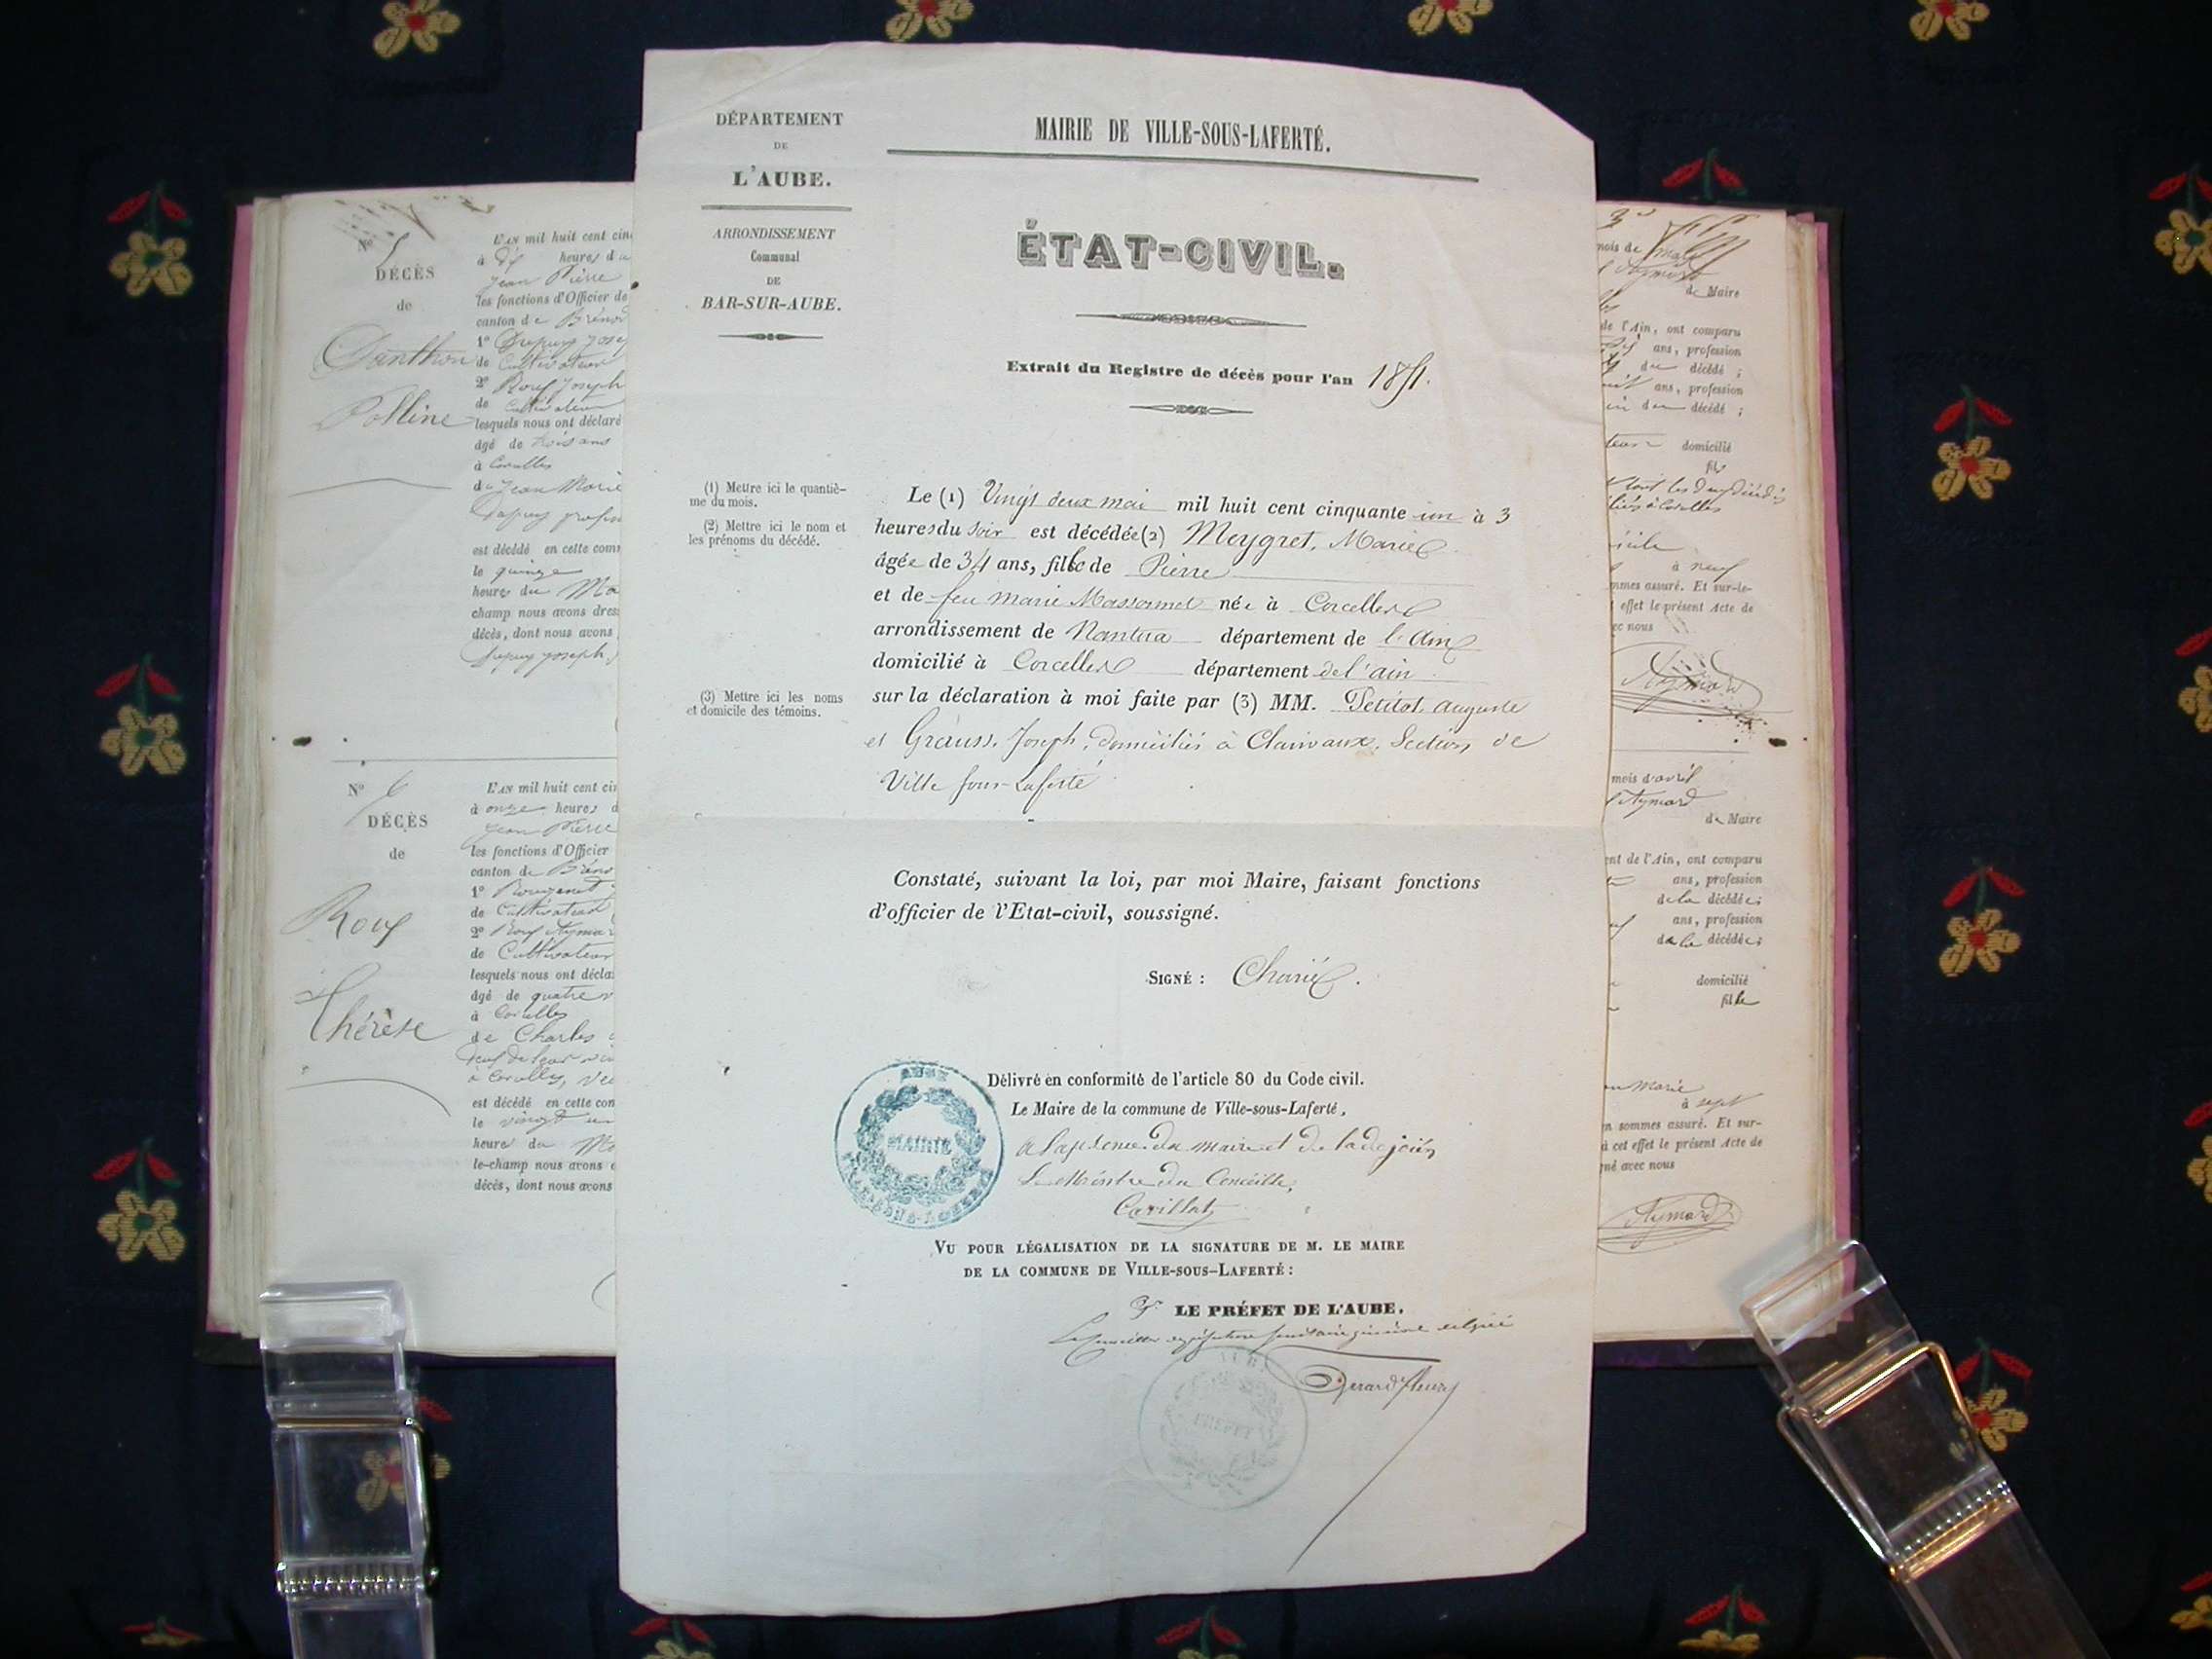 DÉPARTEMENT
DE
L'AUBE.
ARRONDISSEMENT
Communal
DE
BAR-SUR-AUBE.
MAIRIE DE VILLE-SOUS-LAFERTÉ.
ÉTAT-CIVIL.
Extrait du Registre de décès pour l'an 1851.
(1) Mettre ici le quantiè-
me du mois.
(2) Mettre ici le nom et
les prénoms du décédé.
(3) Mettre ici les noms
et domicile des témoins.
Le (1) Vingt deux mai mil huit cent cinquante un à 3
heures du soir est décédée (2) Meygret, Marie
âgée de 34 ans, fille de Pierre
et de feu marie Massonnet née à Corcelles
arrondissement de Nantua département de l'Ain
domicilié à Corcelles département de l'ain
sur la déclaration à moi faite par (3) MM. Petitot, auguste
et Grauss, Joseph, domiciliés à Clairvaux, Section de
Ville sous-Laferté
Constaté, suivant la loi, par moi Maire, faisant fonctions
d'officier de l'Etat-civil, soussigné.
SIGNÉ : Charié.
Délivré en conformité de l'article 80 du Code civil.
Le Maire de la commune de Ville-sous-Laferté,
du maire et de
Carillat
AUBE
MAIRIE
VU POUR LÉGALISATION DE LA SIGNATURE DE M. LE MAIRE
DE LA COMMUNE DE VILLE-SOUS-LAFERTÉ :
Pr LE PRÉFET DE L'AUBE.
Le Conseiller de préfecture secrétaire général délégué
PRÉFET
No 5
DÉCÈS
de
Danthon
Polline
L'AN mil huit cent cin
à dix heures du
Jean Pierre
les fonctions d'Officier de
canton de Brénod
1° Dupuy Jose
de Cultivateur
2° Roux Joseph
de Cultivateur
lesquels nous ont déclaré
âgé de trois ans
à Corcelles
de Jean Marie
Dupuy
est décédé en cette com
le quinze
heures du Ma
champ nous avons dres
décès, dont nous avons
Dupuy Joseph
No 6
DÉCÈS
de
Roux
Thérèse
L'AN mil huit cent ci
à onze heures d
Jean Pierre
les fonctions d'Officier
canton de Bréno
1°
de Cultivateur
2° Roux Aymar
de Cultivateur
lesquels nous ont décla
âgé de quatre v
à Corcelles
de Charles
à Corcelles,
est décédé en cette con
le vingt un
heures du Ma
le-champ nous avons
décès, dont nous avons
mois de mars
Aymard
de Maire
de l'Ain, ont comparu
ans, profession
du décédé ;
ans, profession
du décédé ;
domicilié
fils
tous les deux décédés
à Corcelles
à neuf
mmes assuré. Et sur-le-
effet le présent Acte de
ec nous
Aymard
mois d'avril
Aymard
de Maire
ent de l'Ain, ont comparu
ans, profession
de la décédée ;
ans, profession
de la décédée ;
domicilié
fille
marie
à sept
n sommes assuré. Et sur-
à cet effet le présent Acte de
gné avec nous
Aymard